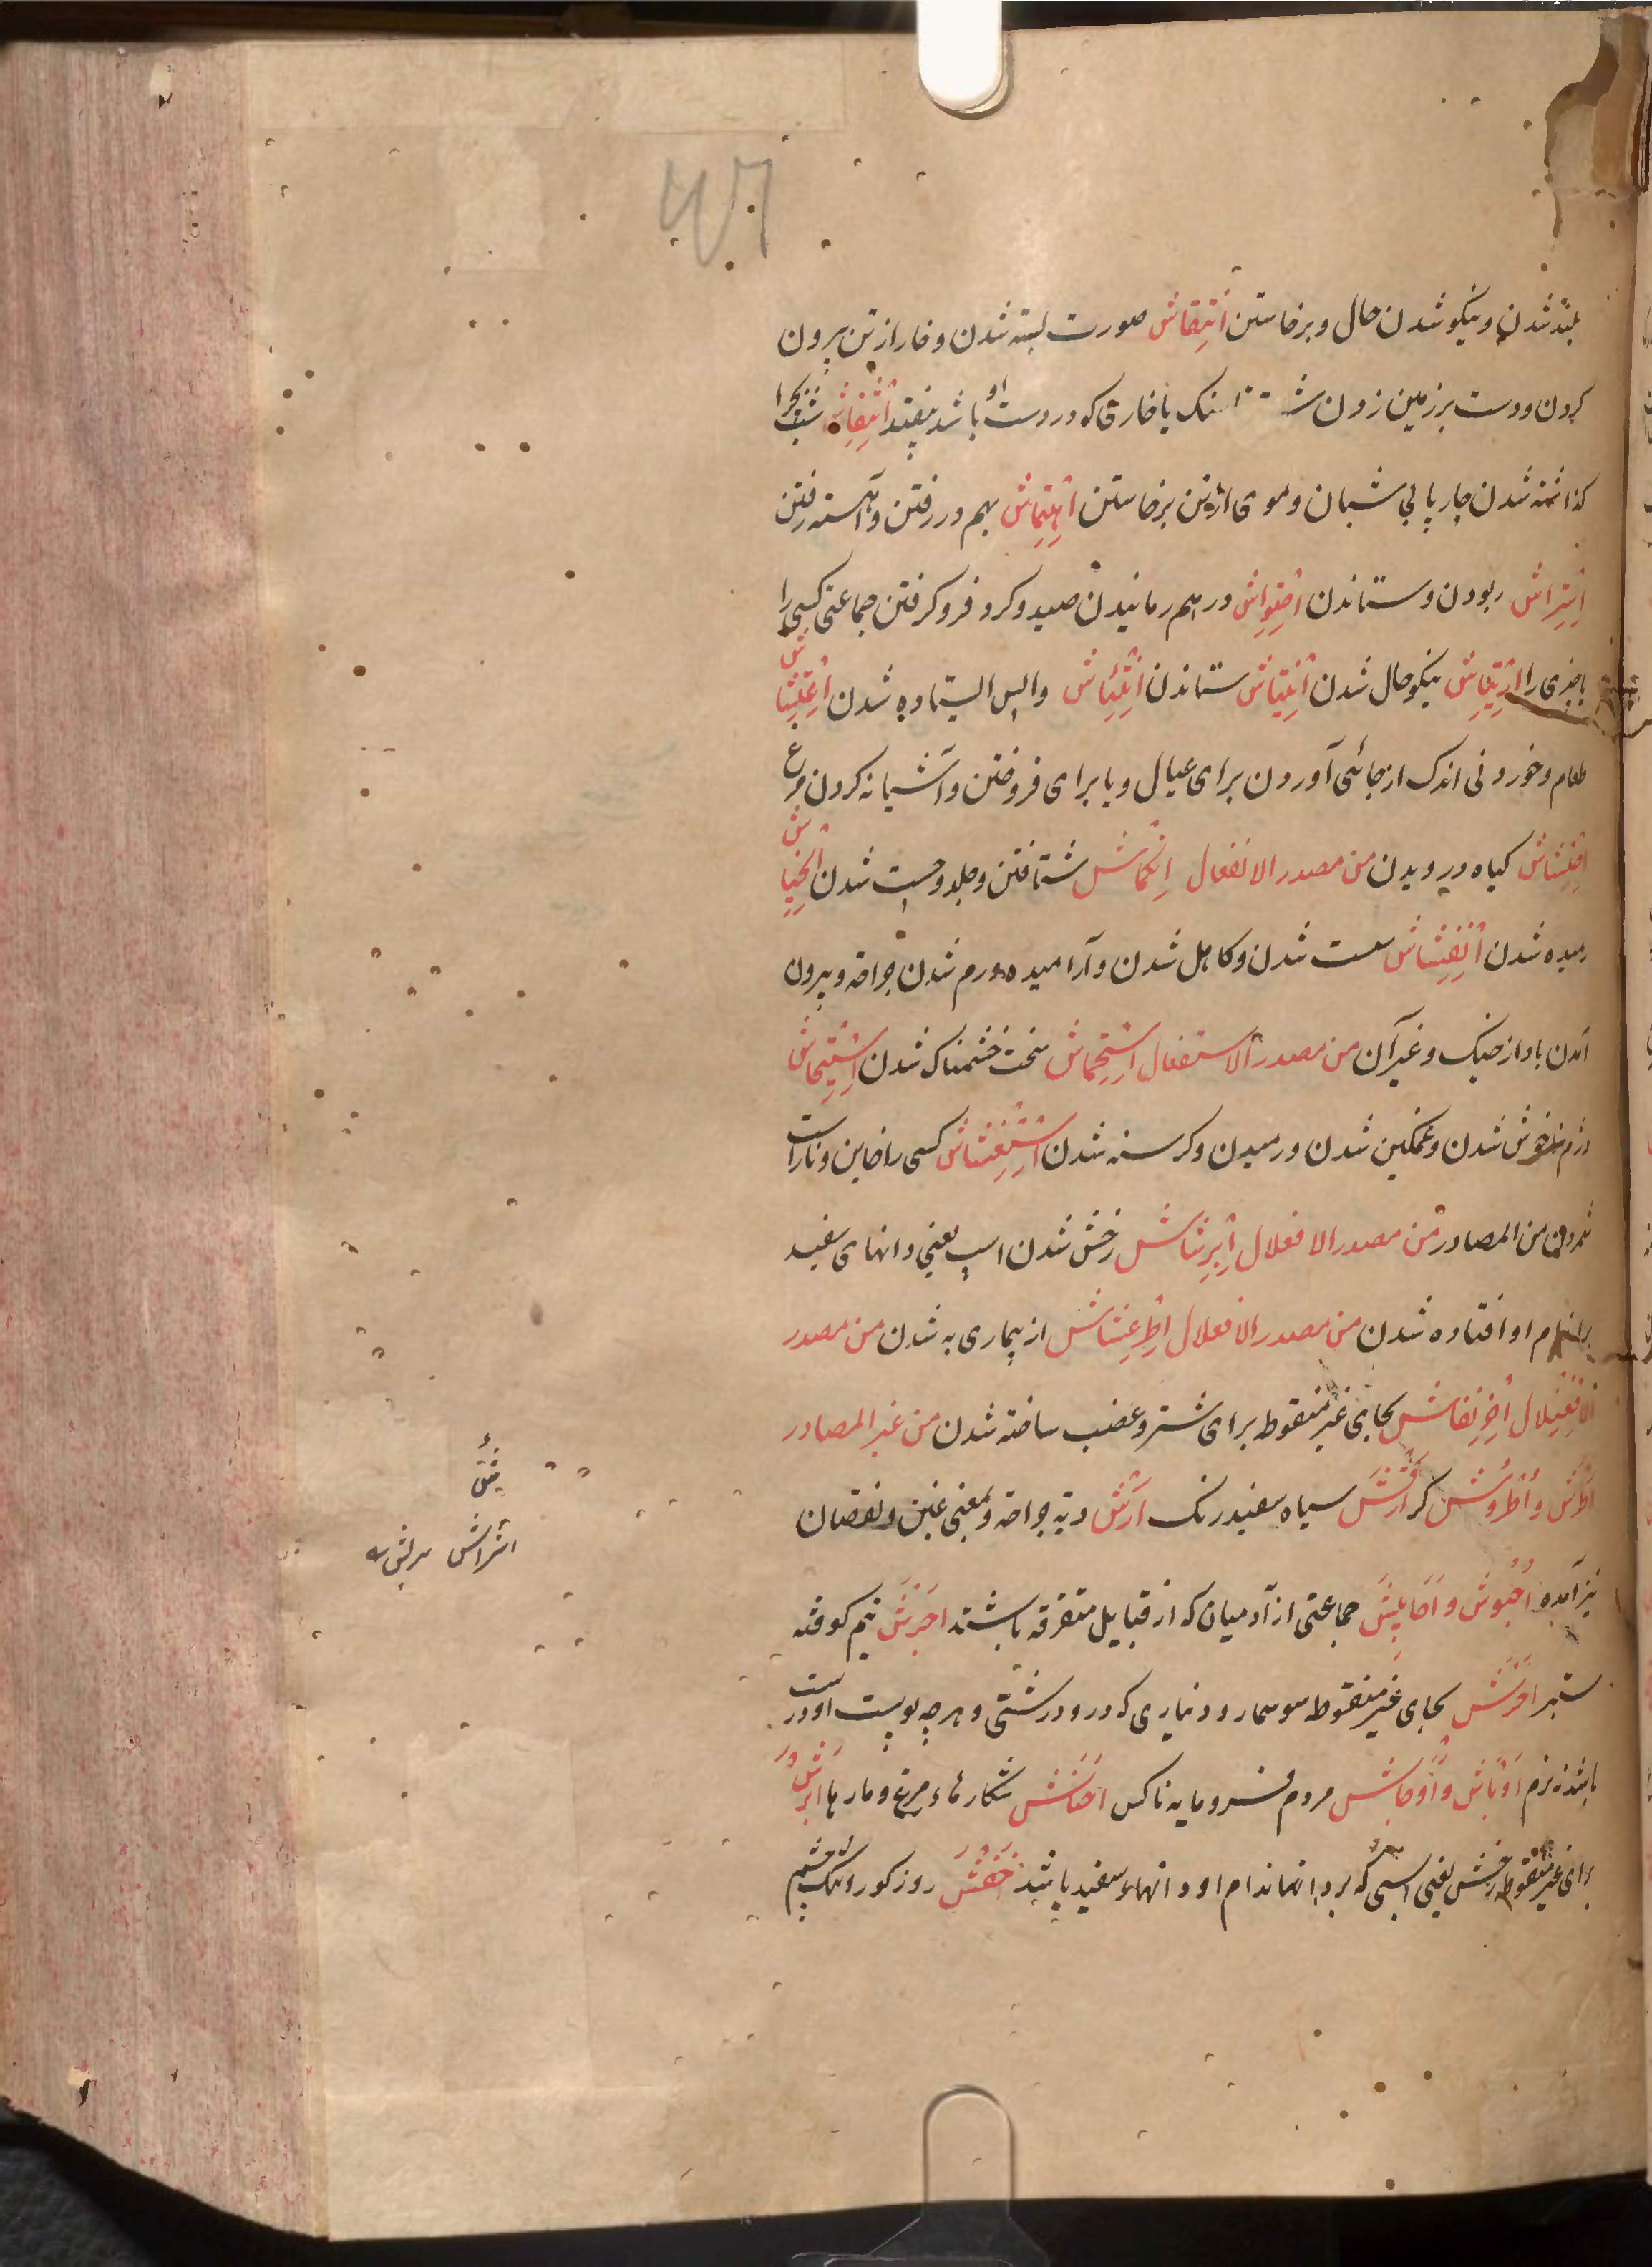 بلند شدن و نیکو شدن حال و برخاستن اِنتِقاش صورت بسته شدن و خار از تن بیرون
کردن و دست بر زمین زدن سنک یا خار که در دست او باشد بیفتد اِنتِفاش شب بچرا
کذاشته شدن چارپا بی شبان و موی از تن برخاستن اِهتِماش بهم در رفتن و آهسته رفتن
اِبتِراش ربودن و ستاندن اِحتِواش در هم رمانیدن صید و کرد فرو کرفتن جماعتی کسی را
یا چیزی را اِرتِیاش نیکو حال شدن اِنتِیاش ستاندن واپس ایستاده شدن اِعتِشاش
طعام و خوردنی اندک از جائی آوردن برای عیال و یا برای فروختن و آشیانه کردن مرغ
کیاه درویدن من مصدر الانفعال اِنکِماش شتافتن و جلد و چست شدن اِنحِیاش
رمیده شدن اِنفِشاش سست شدن و کاهل شدن و آرامیده ورم شدن جراحة و بیرون
آمدن باد از خیک و غیر آن من مصدر الاستفعال اِستِحماش سخت خشمناک شدن اِستِیحاش
دژم ناخوش شدن و غمکین شدن و رمیدن و کرسنه شدن اِستِغشاش کسی را خاین و ناراست
شمردن من المصادر من مصدر الافعلال اِبرِشاش رخش شدن اسپ یعنی دانهای سفید
بر اندام او افتاده شدن من مصدر الافعلال اِطرِغشاش از بیماری به شدن من مصدر
الافعنلال اِحرِنفاش بحای غیر منقوط برای شتر و غضب ساخته شدن من غیر المصادر
اَطرَش و اُطروُش کر اَرقَش سیاه سفید رنک اَرش دیة جراحة و بمعنی غبن و نقصان
نیز آمده اُحبُوش و اَحابِیش جماعتی از آدمیان که از قبایل متفرقه باشند اَجرَش نیم کوفته
ستبر اَحرَش بحای غیر منقوط سوسمار و دیناری که درو درشتی و هر چه پوست او درشت
باشد نه نرم اَوباش و اَوخاش مردم فرومایه ناکس اَحناش شکارهاء مرغ و مارها اَبرَش
برای غیر منقوط رخش یعنی اسپی که بر اندام او دانهاء سفید باشد اَخفَش روز کور و تنک چشم